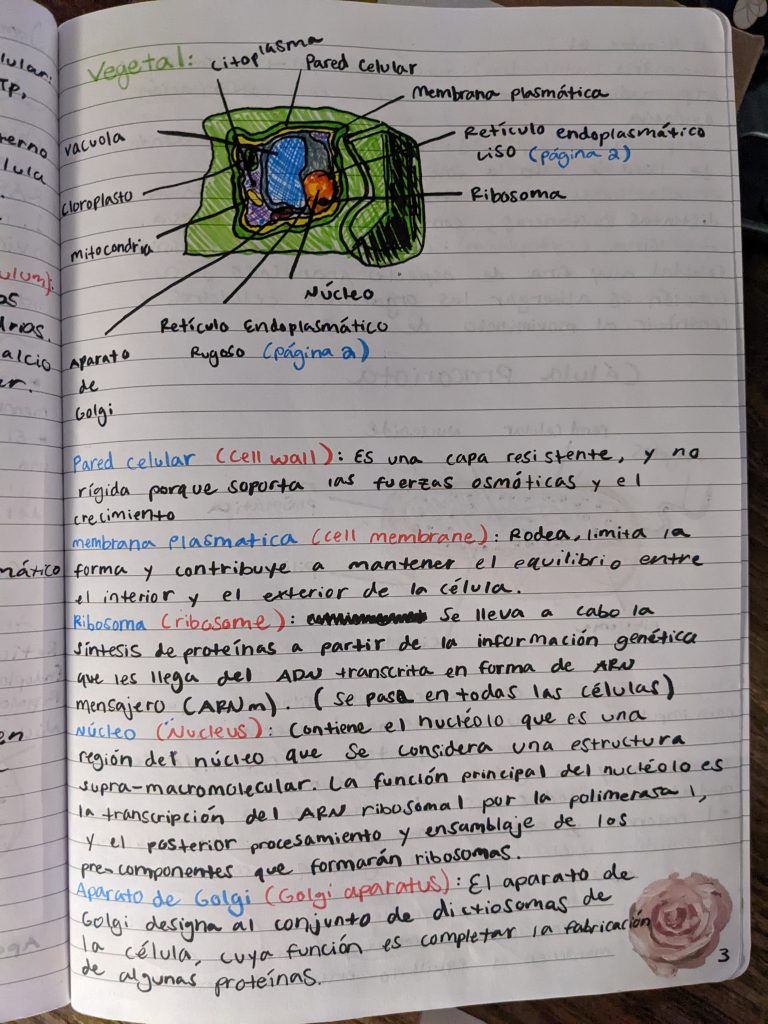 lular:
TP,
terno
lula
ulum):
as
drias.
alcio
ar.
mático
en
Vegetal:
Citoplasma
Pared celular
Membrana plasmática
vacuola
Retículo endoplasmático
Liso (página 2)
cloroplasto
Ribosoma
mitocondria
Núcleo
Retículo Endoplasmático
Rugoso (página 2)
Aparato
de
Golgi
Pared celular (cell wall): Es una capa resistente, y no
rígida porque soporta las fuerzas osmóticas y el
crecimiento
membrana plasmatica (cell membrane): Rodea, limita la
forma y contribuye a mantener el equilibrio entre
el interior y el exterior de la célula.
Ribosoma (ribosome): Se lleva a cabo la
síntesis de proteínas a partir de la información genética
que les llega del ADN transcrita en forma de ARN
mensajero (ARNm). (se pasa en todas las células)
Núcleo (Nucleus): Contiene el nucléolo que es una
región del núcleo que se considera una estructura
supra-macromolecular. La función principal del nucléolo es
la transcripción del ARN ribosomal por la polimerasa 1,
y el posterior procesamiento y ensamblaje de los
pre-componentes que formarán ribosomas.
Aparato de Golgi (Golgi aparatus): El aparato de
Golgi designa al conjunto de dictiosomas de
la célula, cuya función es completar la fabricación
de algunas proteínas.
3